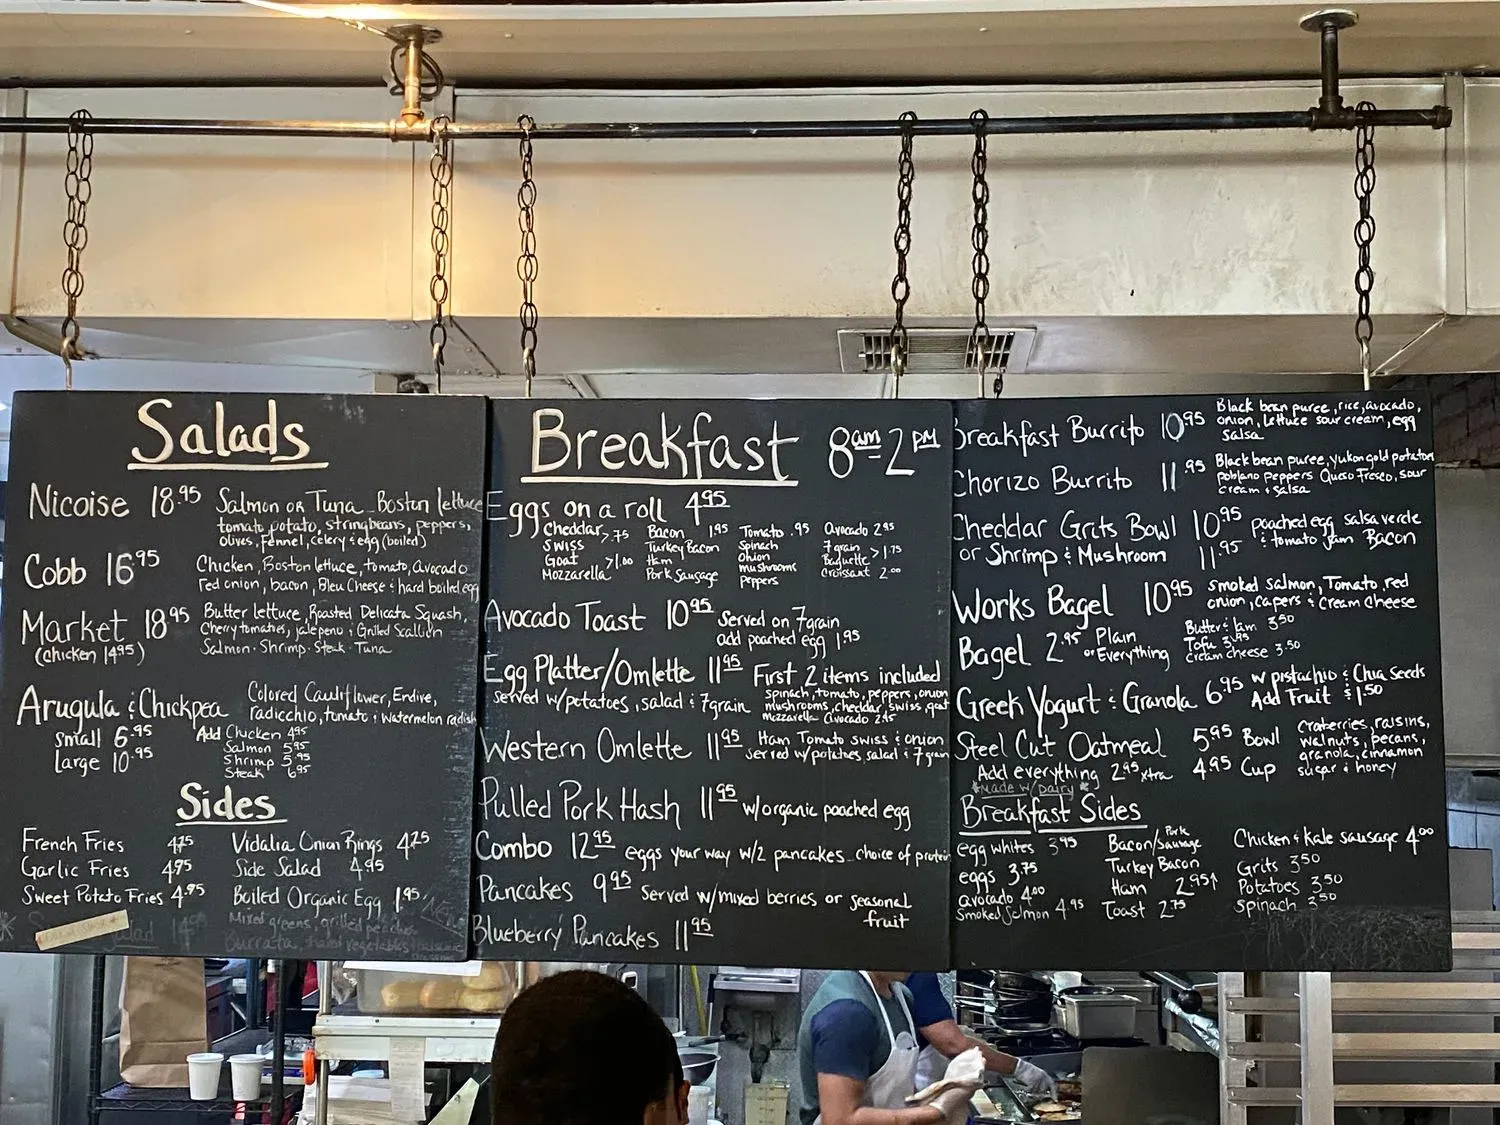 Salads
Nicoise 18.95 Salmon or Tuna Boston lettuce
tomato, potato, stringbeans, peppers,
olives, fennel, celery & egg (boiled)
Cobb 16.95 Chicken, Boston lettuce, tomato, avocado
red onion, bacon, Bleu Cheese & hard boiled egg
Market 18.95 Butter lettuce, Roasted Delicata Squash,
(chicken 14.95) Cherry tomatoes, jalepeno & Grilled Scallion
Salmon · Shrimp · Steak · Tuna
Arugula & Chickpea Colored Cauliflower, Endive,
radicchio, tomato & watermelon radish
small 6.95 Add Chicken 4.95
large 10.95 Salmon 5.95
Shrimp 5.95
Steak 6.95
Sides
French Fries 4.75 Vidalia Onion Rings 4.25
Garlic Fries 4.95 Side Salad 4.95
Sweet Potato Fries 4.95 Boiled Organic Egg 1.95
Mixed greens, grilled peaches
Burrata
Breakfast 8am-2pm
Eggs on a roll 4.95
Cheddar > .75 Bacon 1.95 Tomato .95 Avocado 2.95
Swiss Turkey Bacon Spinach 7 grain > 1.75
Goat > 1.00 Ham Onion Baguette
Mozzarella Pork Sausage mushrooms Croissant 2.00
peppers
Avocado Toast 10.95 Served on 7 grain
add poached egg 1.95
Egg Platter/Omlette 11.95 First 2 items included
served w/potatoes, salad & 7 grain spinach, tomato, peppers, onion
mushrooms, cheddar, swiss, goat
mozzarella Avocado 2.95
Western Omlette 11.95 Ham Tomato swiss & onion
served w/potatoes, salad & 7 grain
Pulled Pork Hash 11.95 w/organic poached egg
Combo 12.95 eggs your way w/2 pancakes choice of protein
Pancakes 9.95 Served w/mixed berries or seasonal
fruit
Blueberry Pancakes 11.95
Breakfast Burrito 10.95 Black bean puree, rice, avocado,
onion, lettuce sour cream, egg
salsa
Chorizo Burrito 11.95 Black bean puree, yukon gold potatoes
poblano peppers Queso Fresco, sour
cream & salsa
Cheddar Grits Bowl 10.95 poached egg salsa verde
or Shrimp & Mushroom 11.95 & tomato jam Bacon
Works Bagel 10.95 smoked salmon, Tomato red
onion, capers & cream cheese
Bagel 2.95 Plain or Everything Butter & Jam 3.50
Tofu 3.95
cream cheese 3.50
Greek Yogurt & Granola 6.95 w pistachio & Chia Seeds
Add Fruit $1.50
Steel Cut Oatmeal 5.95 Bowl craberries, raisins,
walnuts, pecans,
Add everything 2.95 xtra 4.95 Cup granola, cinnamon
sugar & honey
*Made w/dairy*
Breakfast Sides
egg whites 3.95 Bacon/Pork Sausage Chicken & Kale sausage 4.00
eggs 3.75 Turkey Bacon Grits 3.50
avocado 4.00 Ham 2.95 Potatoes 3.50
Smoked Salmon 4.95 Toast 2.75 Spinach 3.50